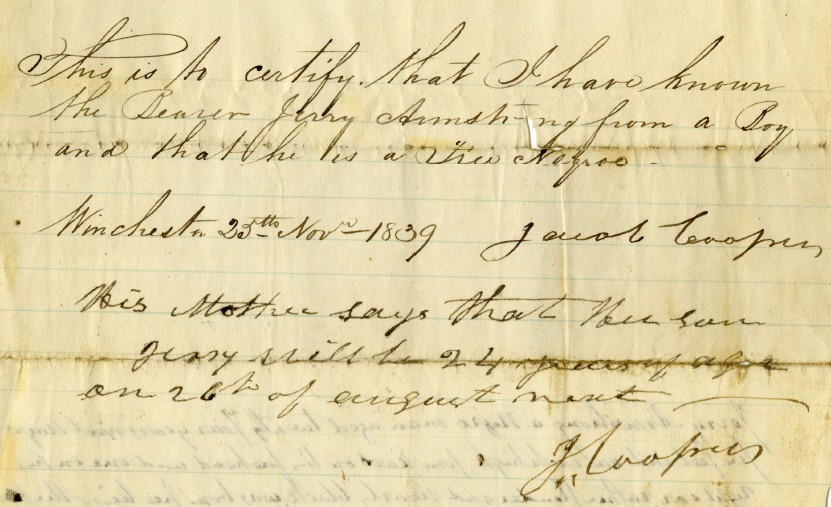 This is to certify that I have known
the Bearer Jerry Armst ng from a Boy
and that he is a Free Negroe -
Winchester 25th Novr 1839 Jacob Cooper
His Mother says that Her son
Jerry will be 24 years of age
on 26th of august next
J Cooper